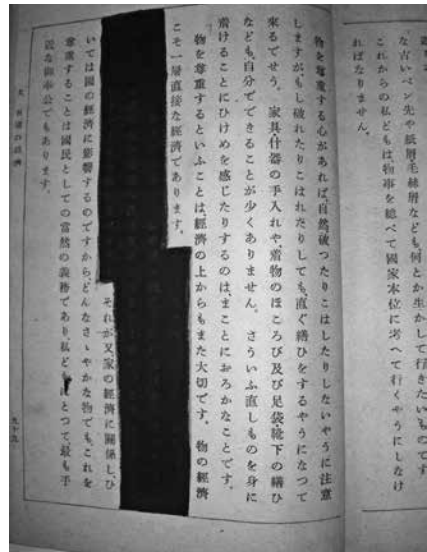 な古いペン先や紙屑毛絲屑なども、何とか生かして行きたいものです
これからの私どもは、物事を總べて國家本位に考へて行くやうにしなけ
ればなりません。
物を尊重する心があれば、自然破つたりこはしたりしないやうに注意
しますが、もし破れたりこはれたりしても、直ぐ繕ひをするやうになつて
來るでせう。 家具什器の手入れや、着物のほころび及び足袋、靴下の繕ひ
なども、自分でできることが少くありません。 さういふ直しものを身に
着けることにひけめを感じたりするのは、まことにおろかなことです。
物を尊重するといふことは、經濟の上からもまた大切です。 物の經濟
こそ一層直接な經濟であります。
それが又、家の經濟に關係し、ひ
いては國の經濟に影響するのですから、どんなさゝやかな物でも、これを
尊重することは國民としての當然の義務であり、私どもにとつて、最も手
近な御奉公でもあります。
九十九